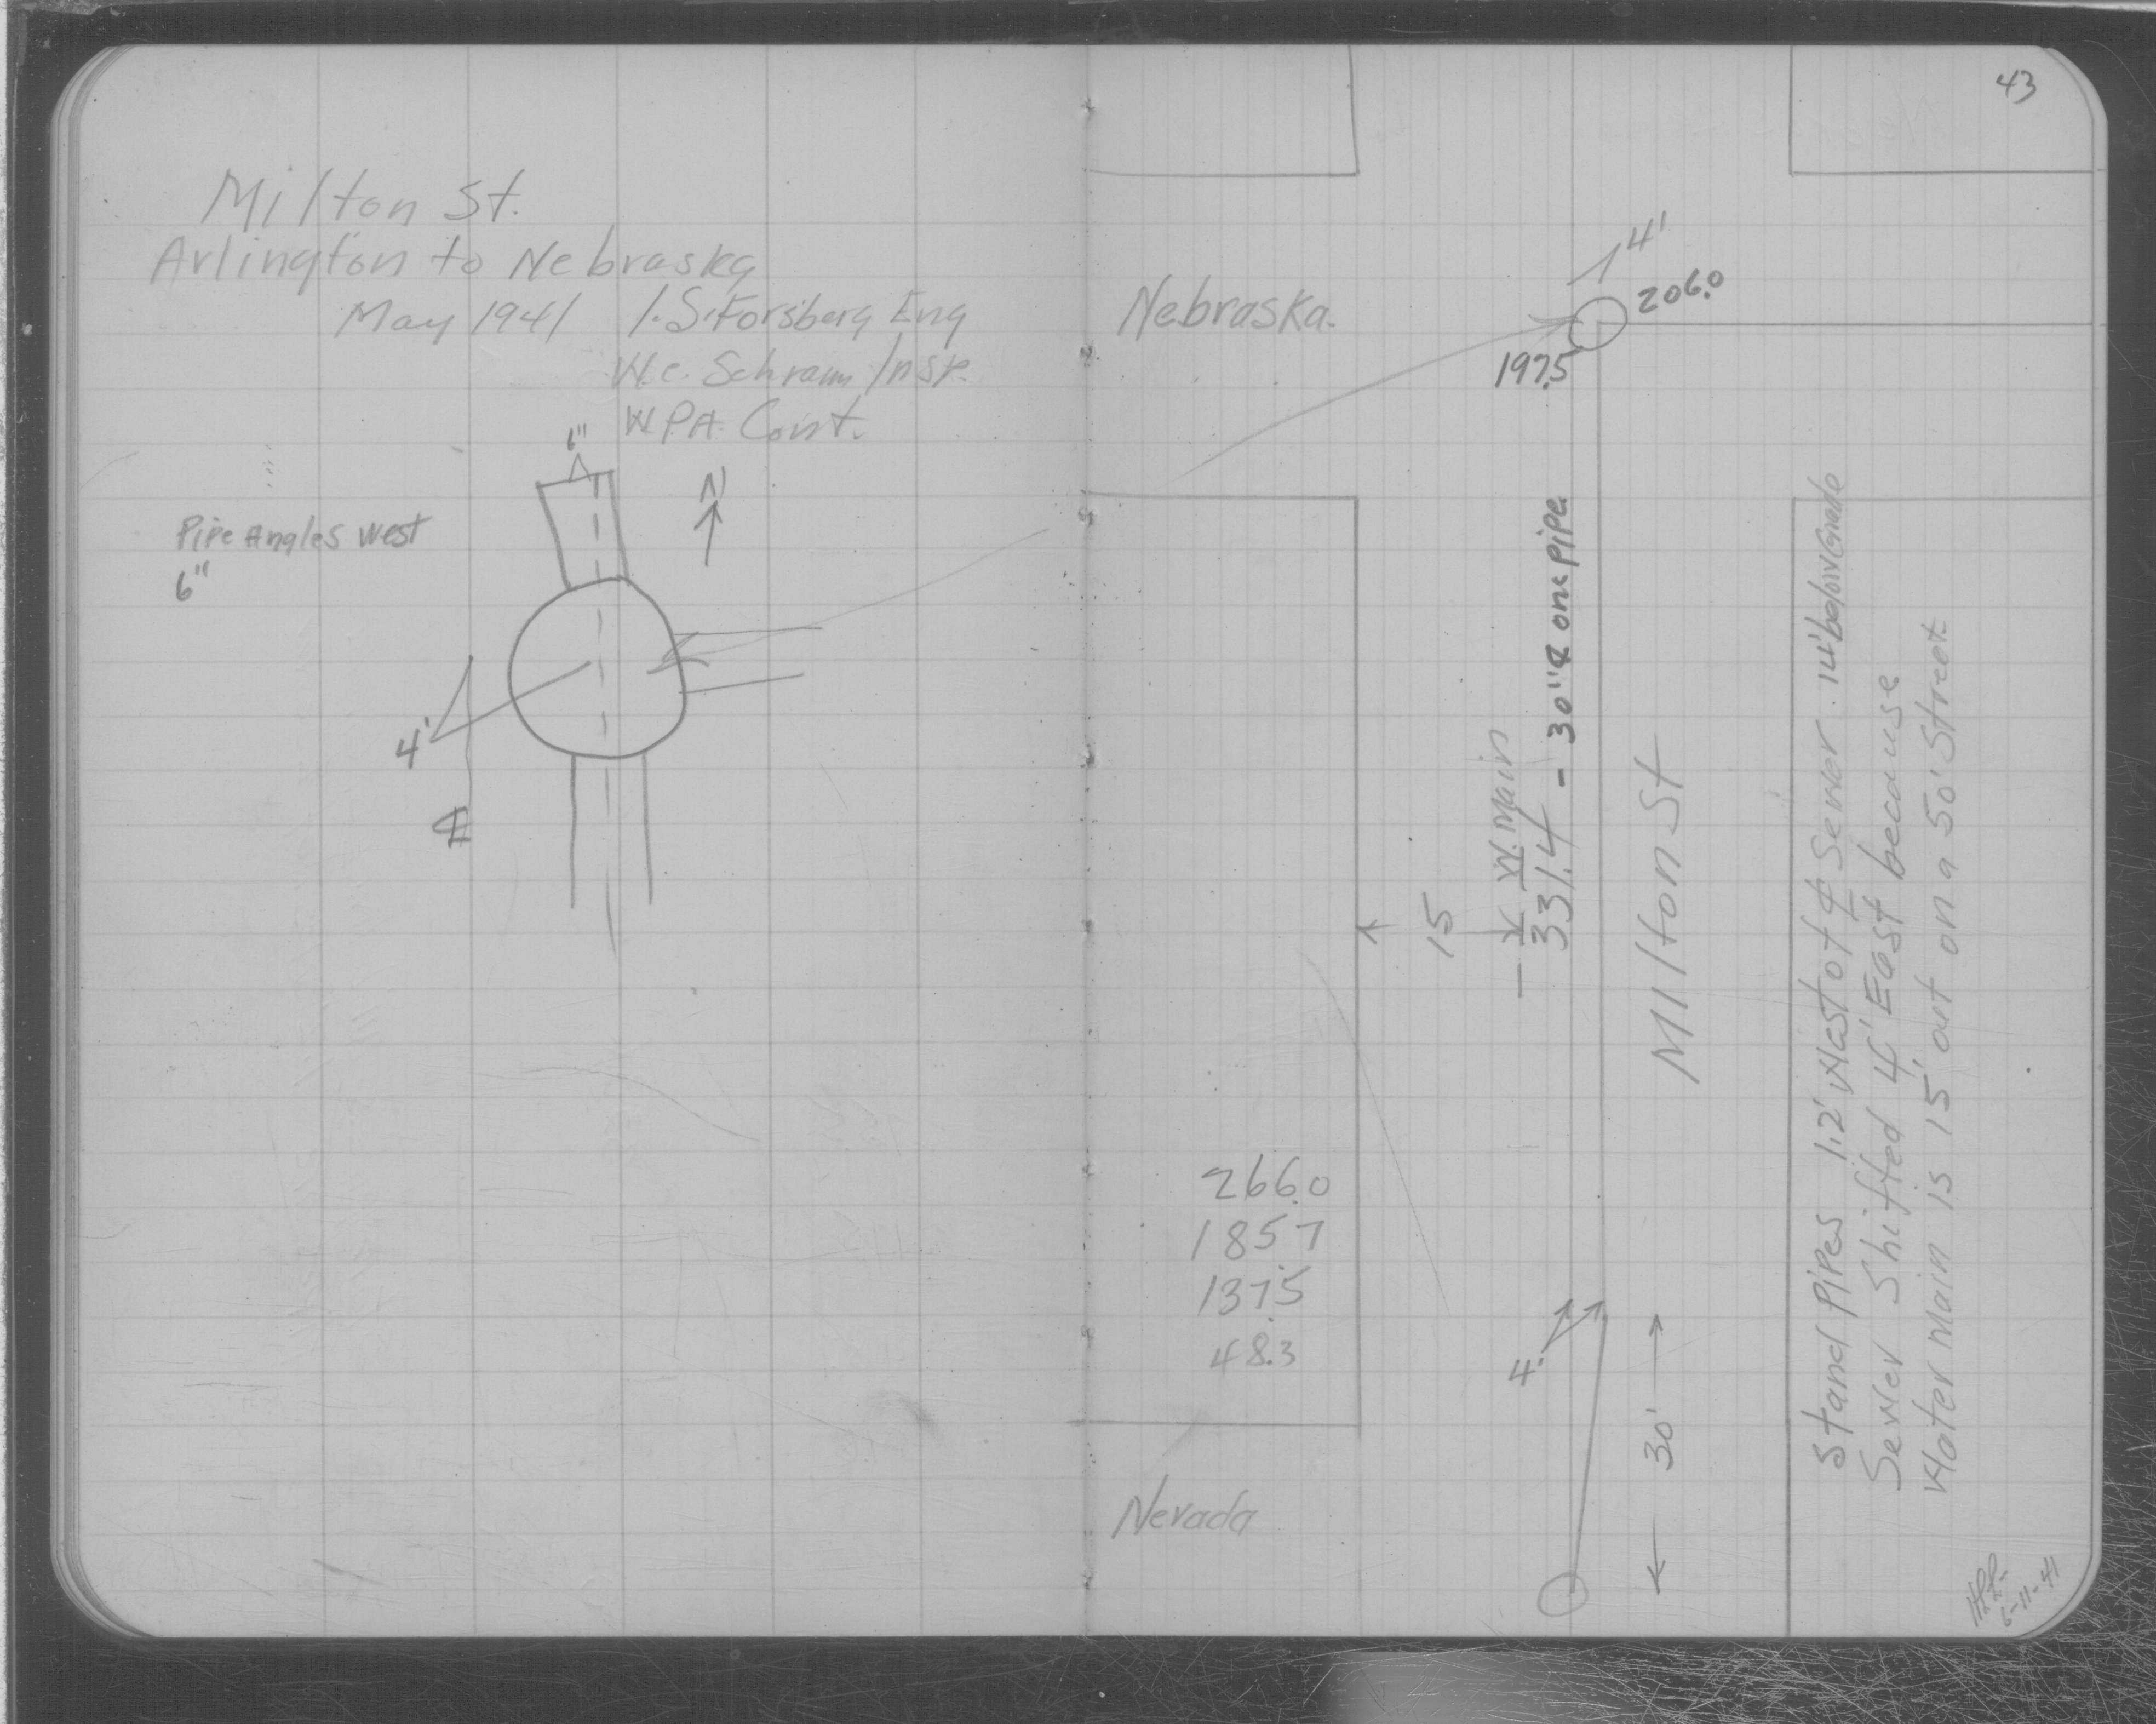 Milton St.
Arlington to Nebraska
May 1941 I.S. Forsberg Eng
W.C. Schram Insp.
W.P.A. Const.
6"
N
Pipe Angles West
6"
4'
℄
43
4'
206.0
Nebraska.
197.5
15
W. Main
331.4 - 30" ℄ one pipe
Milton St
Stand Pipes 1.2' West of ℄ Sewer. 14' below Grade
Sewer Shifted 4' East because
Water Main is 15' out on a 50' Street
266.0
185.7
137.5
48.3
4'
30'
Nevada
6-11-41